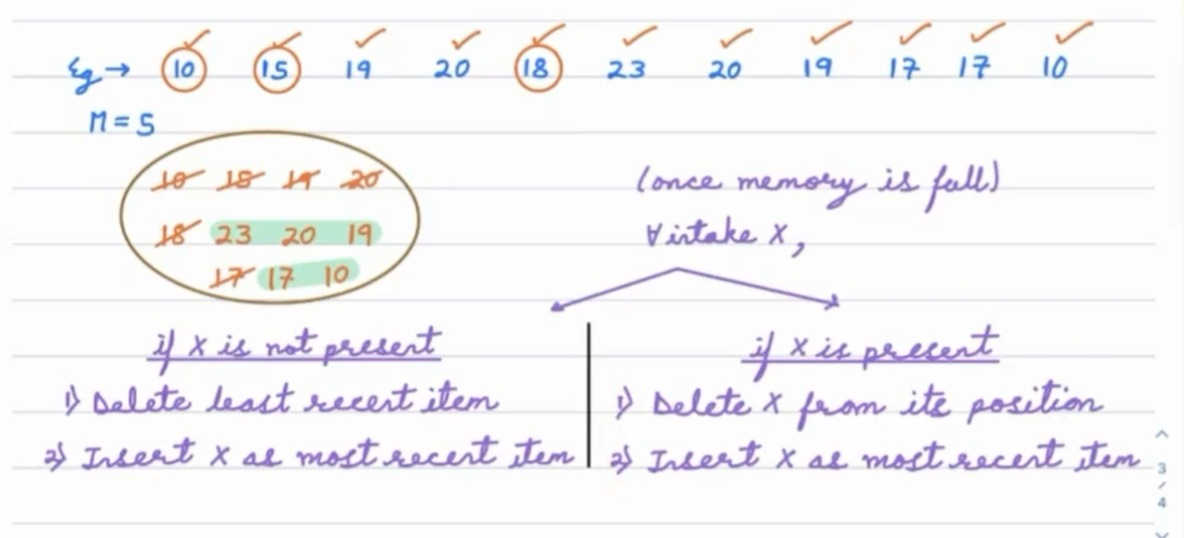 Eg → 10 15 19 20 18 23 20 19 17 17 10
M = 5
10 15 19 20
18 23 20 19
17 17 10
(once memory is full)
∀ intake X,
if X is not present
1) Delete least recent item
2) Insert X as most recent item
if X is present
1) Delete X from its position
2) Insert X as most recent item
3
/
4